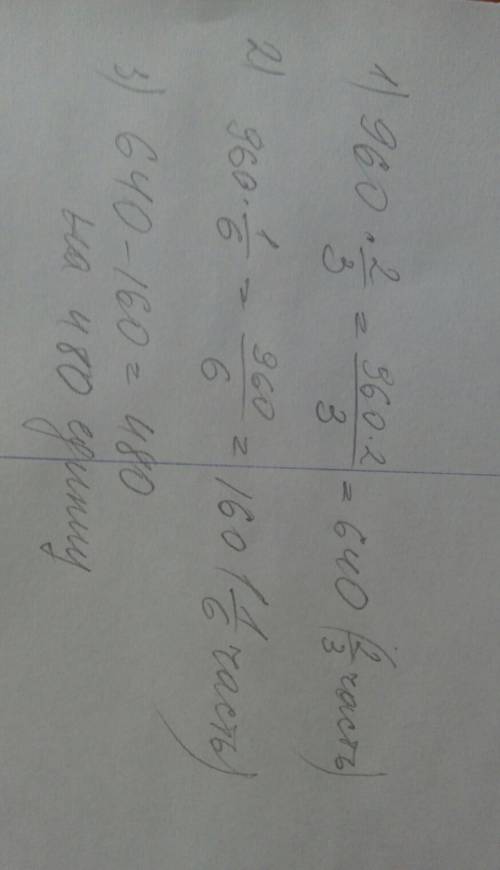 1) 960 · 2/3 = 960·2/3 = 640 (2/3 часть)
2) 960 · 1/6 = 960/6 = 160 (1/6 часть)
3) 640 – 160 = 480
на 480 единиц